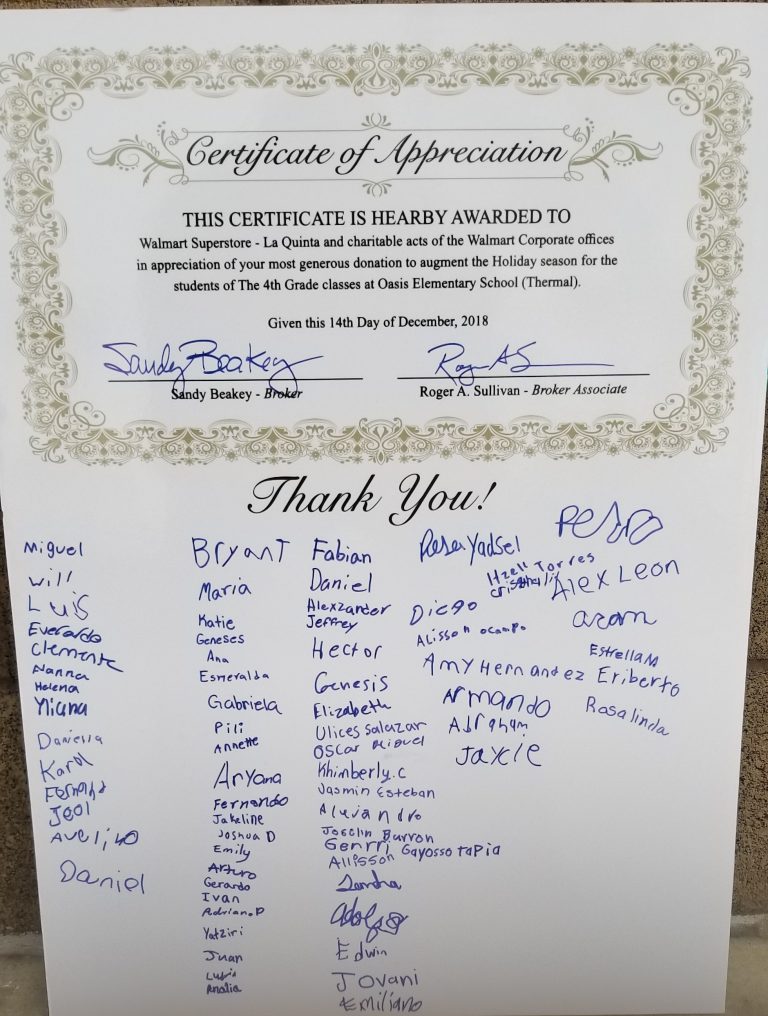 Certificate of Appreciation
THIS CERTIFICATE IS HEARBY AWARDED TO
Walmart Superstore - La Quinta and charitable acts of the Walmart Corporate offices
in appreciation of your most generous donation to augment the Holiday season for the
students of The 4th Grade classes at Oasis Elementary School (Thermal).
Given this 14th Day of December, 2018
Sandy Beakey
Sandy Beakey - Broker
Roger A. Sullivan - Broker Associate
Thank You!
Miguel
Will
Luis
Everardo
Clemente
Nanna
Helena
Yliana
Daniella
Karol
Fernando
Jeol
Avelino
Daniel
Bryant
Maria
Katie
Geneses
Ana
Esmeralda
Gabriela
Pili
Annette
Aryana
Fernando
Jakeline
Joshua D
Emily
Arturo
Gerardo
Ivan
Adriano.P
Yatziri
Juan
Analia
Fabian
Daniel
Alexzander
Jeffrey
Hector
Genesis
Elizabeth
Ulices Salazar
Oscar Miguel
Khimberly.c
Jasmin Esteban
Josclin Barron
Genrri Gayosso Tapia
Allisson
Sandra
Adolfo
Edwin
Jovani
Emiliano
Yadsel
Diego
Alisson ocampo
Amy Hernandez
Armando
Abraham
Jaycie
Pedro
Hzell Torres
Alex Leon
aram
Estrella M
Eriberto
Rosalinda